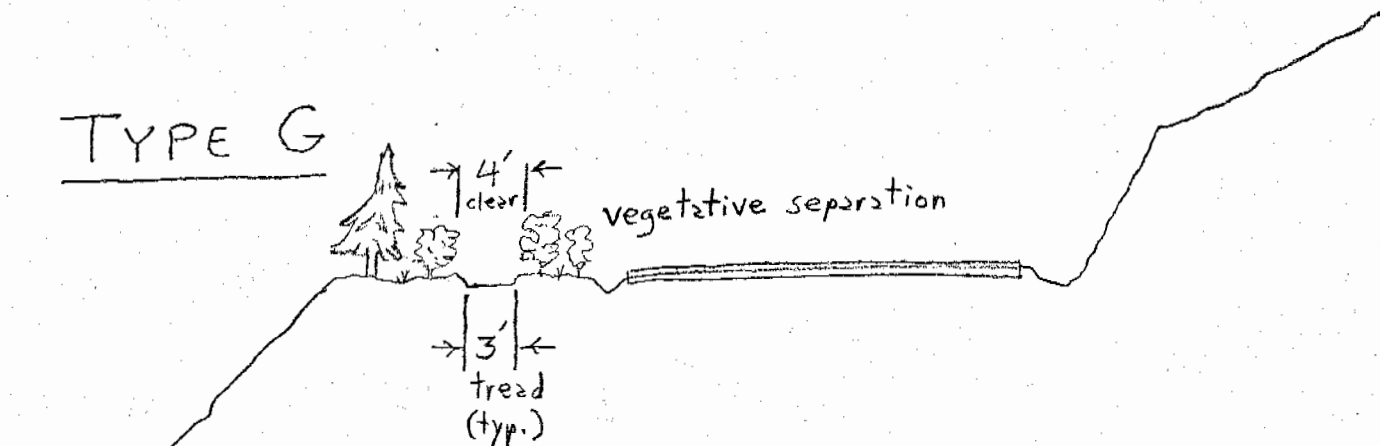 TYPE G
4'
clear
vegetative separation
3'
tread
(typ.)